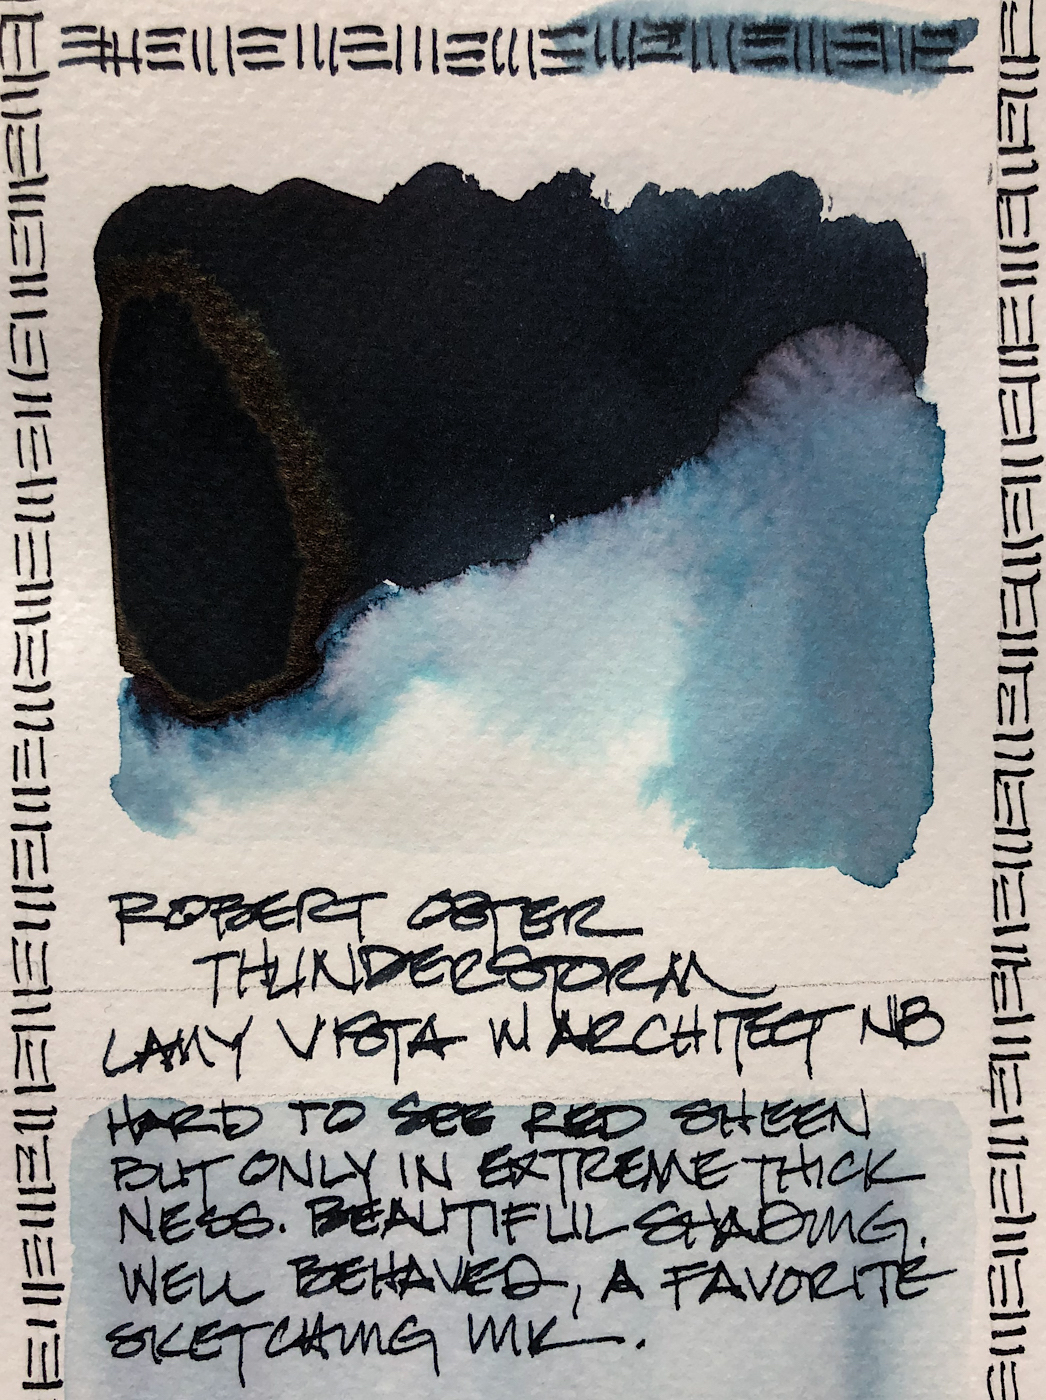 ROBERT OSTER
THUNDERSTORM
LAMY VISTA W ARCHITECT NIB
HARD TO SEE RED SHEEN
BUT ONLY IN EXTREME THICK
NESS. BEAUTIFUL SHADING.
WELL BEHAVED, A FAVORITE
SKETCHING INK.